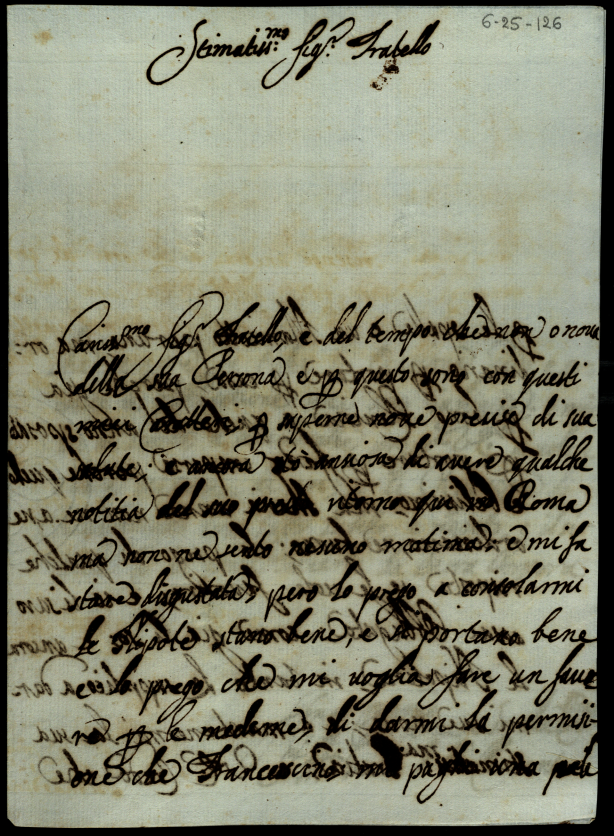 6-25-126
Stimatiss:mo Sig.r Fratello
Cariss.mo Sig.r Fratello è del tempo che non o nova
della sua Persona e p questo sono con questi
miei p saperne nove precise di sua
salute e ancora ansiosa di avere qualche
notitia del suo presto ritorno qui in Roma
ma non ne sento nesuno motivo e mi fa
stare disgustata però lo prego a consolarmi
le Nipote stano bene, e si portano bene
e lo prego che mi voglia fare un favo
re p le medeme, di darmi la permisi-
one che Francescino